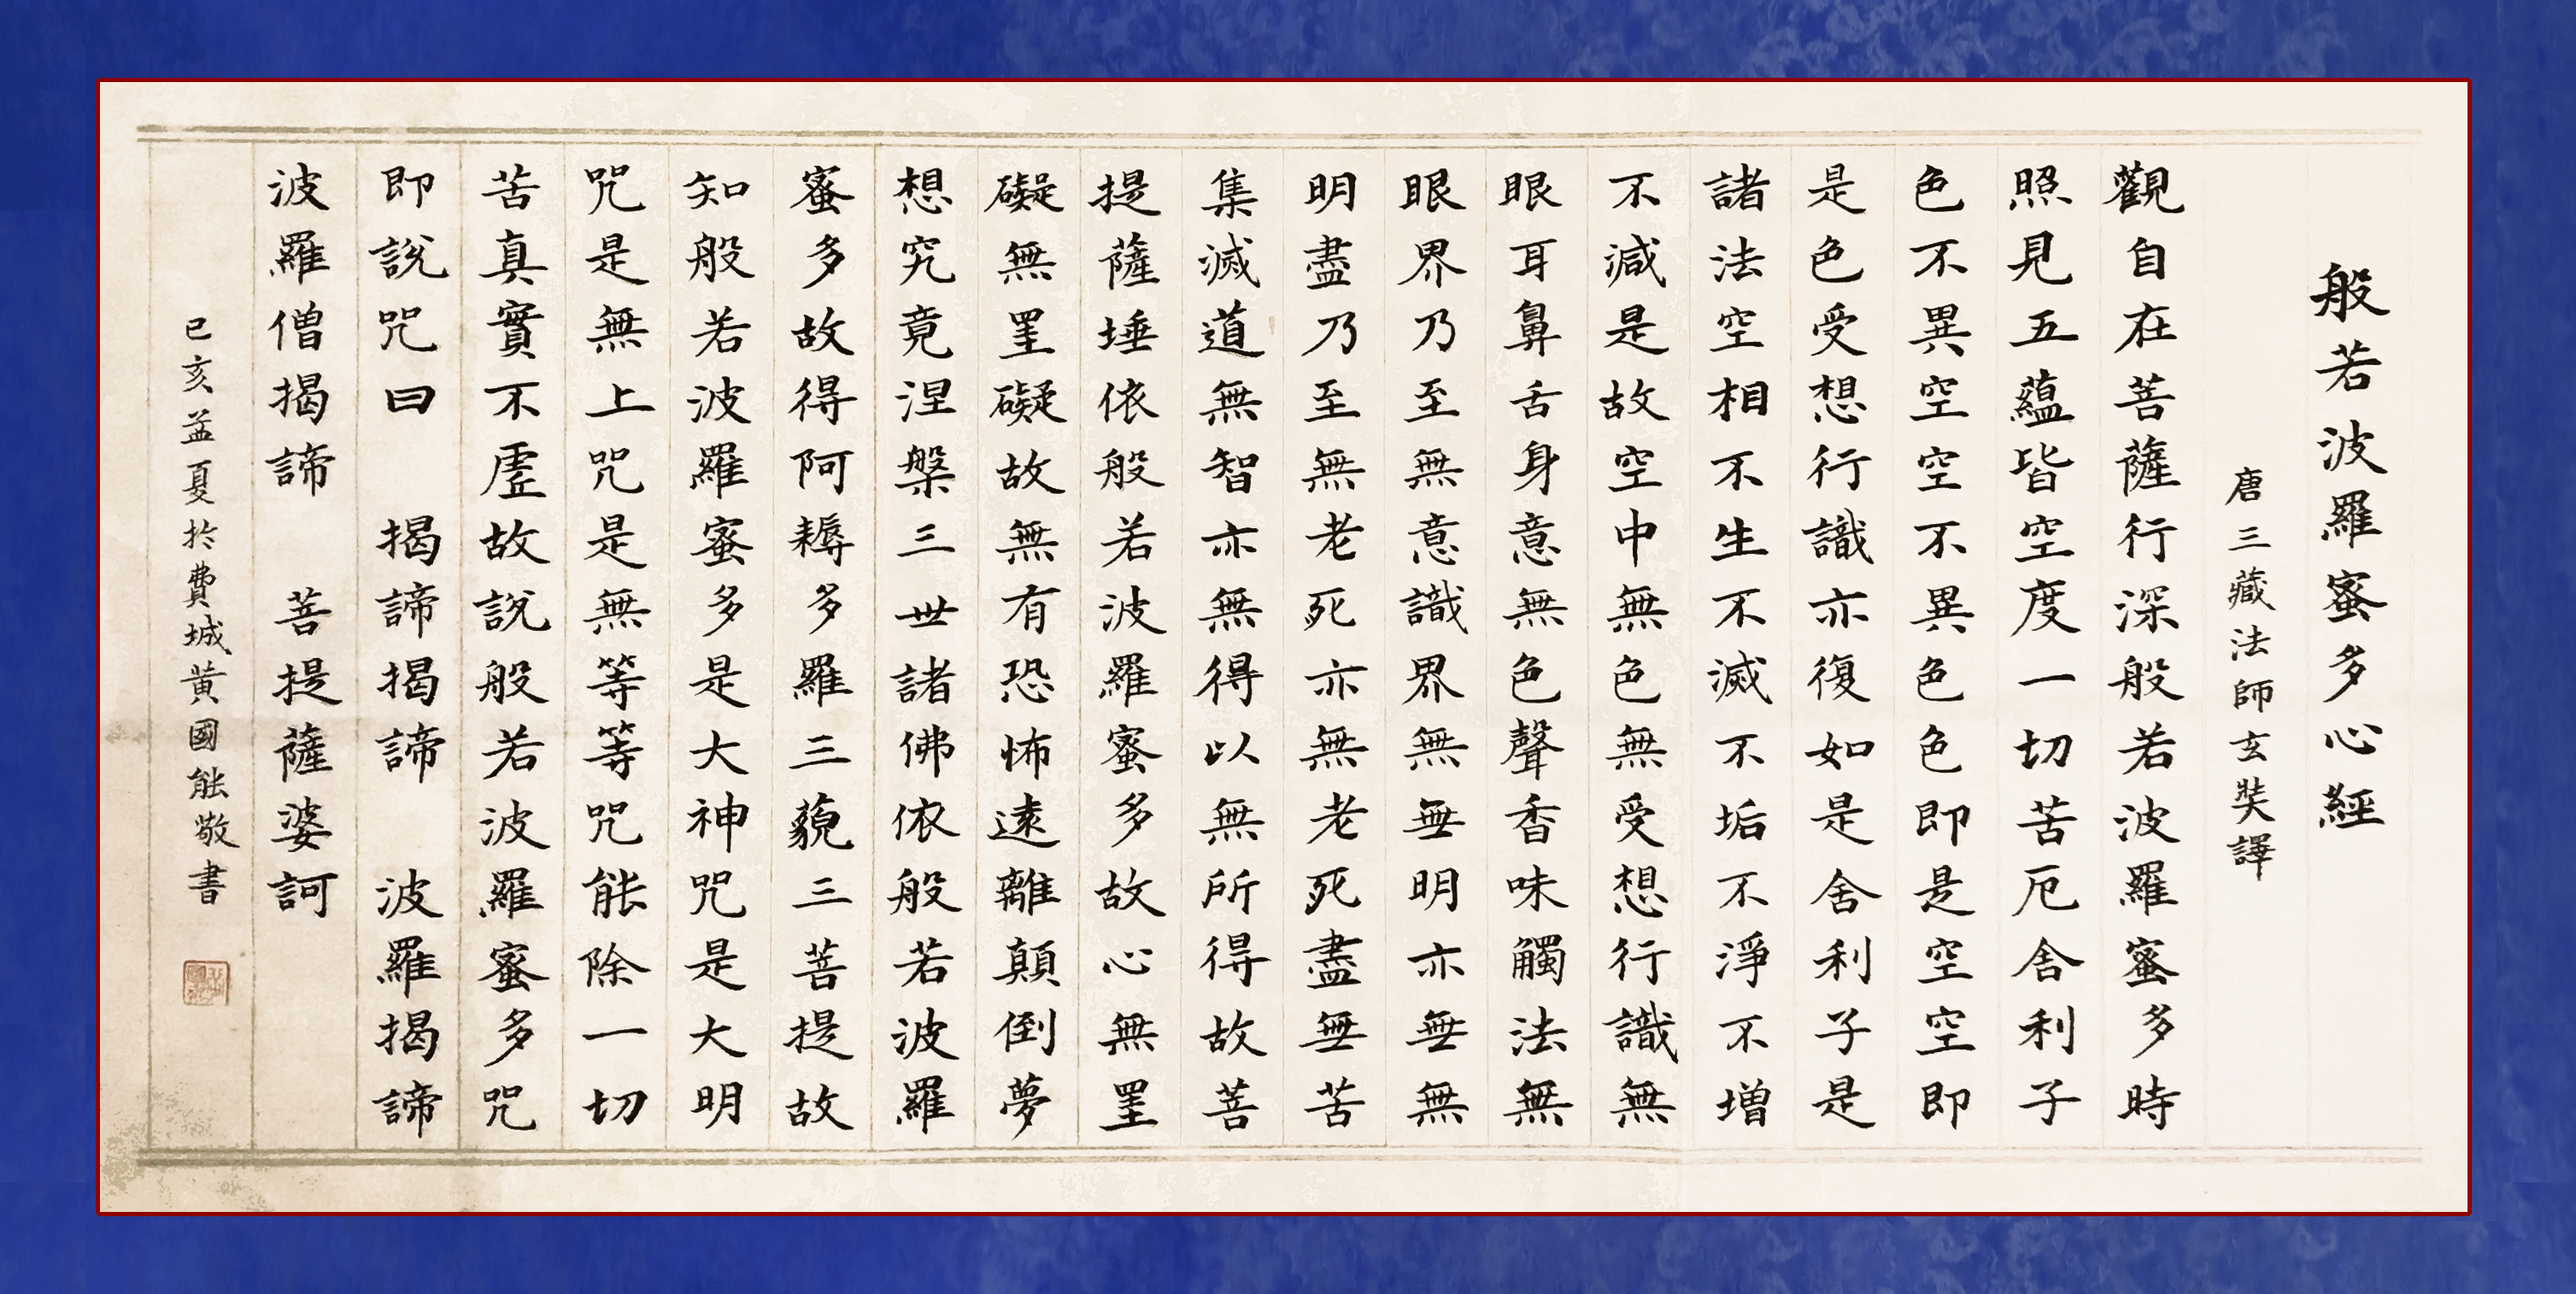 般若波羅蜜多心經
唐三藏法師玄奘譯
觀自在菩薩行深般若波羅蜜多時
照見五蘊皆空度一切苦厄舍利子
色不異空空不異色色即是空空即
是色受想行識亦復如是舍利子是
諸法空相不生不滅不垢不淨不增
不減是故空中無色無受想行識無
眼耳鼻舌身意無色聲香味觸法無
眼界乃至無意識界無無明亦無無
明盡乃至無老死亦無老死盡無苦
集滅道無智亦無得以無所得故菩
提薩埵依般若波羅蜜多故心無罣
礙無罣礙故無有恐怖遠離顛倒夢
想究竟涅槃三世諸佛依般若波羅
蜜多故得阿耨多羅三藐三菩提故
知般若波羅蜜多是大神咒是大明
咒是無上咒是無等等咒能除一切
苦真實不虛故說般若波羅蜜多咒
即說咒曰 揭諦揭諦 波羅揭諦
波羅僧揭諦 菩提薩婆訶
已亥孟夏於費城黃國能敬書